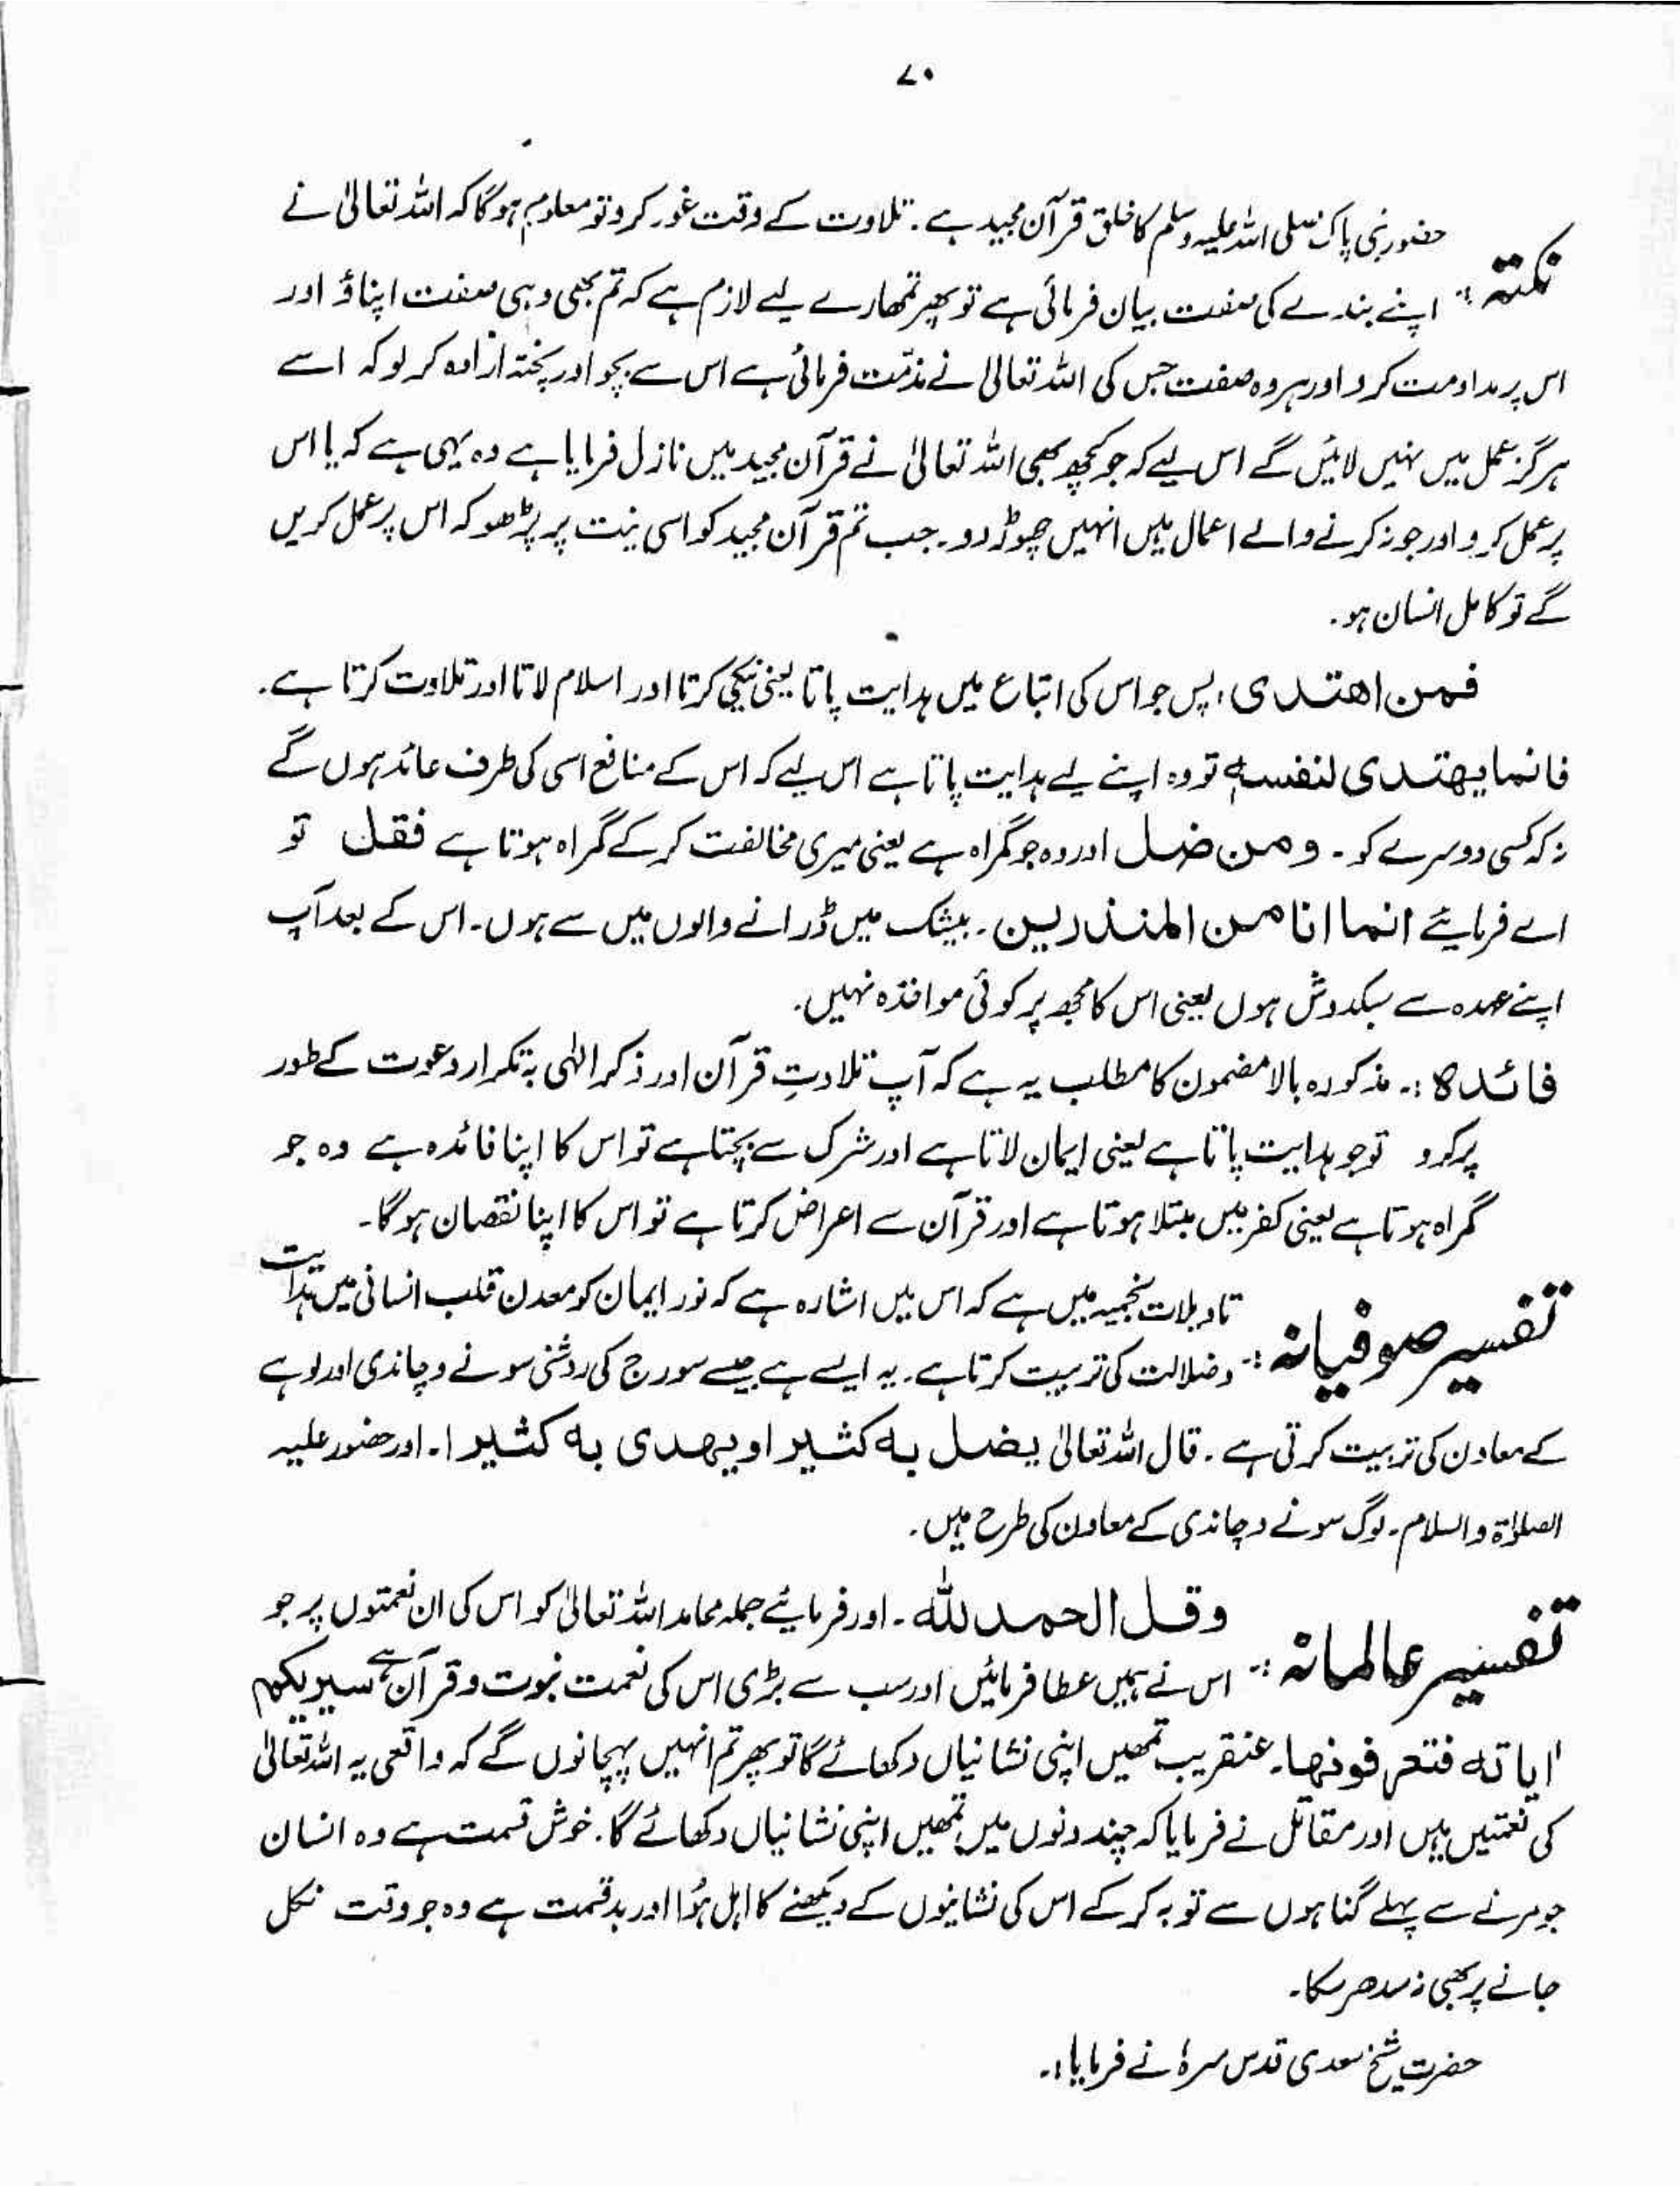 ۷۰
حضور نبی پاک صلی اللہ علیہ وسلم کا خلق قرآن مجید ہے۔ تلاوت کے وقت غور کرو تو معلوم ہوگا کہ اللہ تعالیٰ نے
نکتہ :- اپنے بندے کی صفت بیان فرمائی ہے تو پھر تمھارے لیے لازم ہے کہ تم بھی وہی صفت اپناؤ اور
اس پر مداومت کرو اور ہر وہ صفت جس کی اللہ تعالیٰ نے مذمّت فرمائی ہے اس سے بچو اور پختہ ارادہ کر لو کہ اسے
ہرگز عمل میں نہیں لائیں گے اس لیے کہ جو کچھ بھی اللہ تعالیٰ نے قرآن مجید میں نازل فرمایا ہے وہ یہی ہے کہ یا اس
پر عمل کرو اور جو نہ کرنے والے اعمال ہیں انہیں چھوڑ دو۔ جب تم قرآن مجید کو اسی نیت پر پڑھو کہ اس پر عمل کریں
گے تو کامل انسان ہو۔
فمن اھتدی، پس جو اس کی اتباع میں ہدایت پاتا یعنی نیکی کرتا اور اسلام لاتا اور تلاوت کرتا ہے۔
فانما یھتدی لنفسہٖ تو وہ اپنے لیے ہدایت پاتا ہے اس لیے کہ اس کے منافع اسی کی طرف عائد ہوں گے
نہ کہ کسی دوسرے کو۔ ومن ضل اور وہ جو گمراہ ہے یعنی میری مخالفت کر کے گمراہ ہوتا ہے فقل تو
اسے فرمائیے انما انا من المنذرین۔ بیشک میں ڈرانے والوں میں سے ہوں۔ اس کے بعد آپ
اپنے عہدہ سے سبکدوش ہوں یعنی اس کا مجھ پر کوئی مواخذہ نہیں۔
فائدہ :۔ مذکورہ بالا مضمون کا مطلب یہ ہے کہ آپ تلاوتِ قرآن اور ذکر الٰہی بہ تکرار دعوت کے طور
پر کرو تو جو ہدایت پاتا ہے یعنی ایمان لاتا ہے اور شرک سے بچتا ہے تو اس کا اپنا فائدہ ہے وہ جو
گمراہ ہوتا ہے یعنی کفر میں مبتلا ہوتا ہے اور قرآن سے اعراض کرتا ہے تو اس کا اپنا نقصان ہوگا۔
تاویلات نجمیہ میں ہے کہ اس میں اشارہ ہے کہ نور ایمان کو معدن قلب انسانی میں ہدایت
تفسیر صوفیانہ :- وضلالت کی تربیت کرتا ہے۔ یہ ایسے ہے جیسے سورج کی روشنی سونے و چاندی اور لوہے
کے معادن کی تربیت کرتی ہے۔ قال اللہ تعالیٰ یضل بہ کثیرا ویھدی بہ کثیرا۔ اور حضور علیہ
الصلوٰۃ والسلام۔ لوگ سونے و چاندی کے معادن کی طرح ہیں۔
وقل الحمد للّٰہ۔ اور فرمائیے جملہ محامد اللہ تعالیٰ کو اس کی ان نعمتوں پر جو
تفسیر عالمانہ :- اس نے ہمیں عطا فرمائیں اور سب سے بڑی اس کی نعمت نبوت و قرآن ہے سیریکم
اٰیاتہ فتعرفونھا۔ عنقریب تمھیں اپنی نشانیاں دکھائے گا تو پھر تم انہیں پہچانوں گے کہ واقعی یہ اللہ تعالیٰ
کی نعمتیں ہیں اور مقاتل نے فرمایا کہ چند دنوں میں تمھیں اپنی نشانیاں دکھائے گا۔ خوش قسمت ہے وہ انسان
جو مرنے سے پہلے گناہوں سے توبہ کر کے اس کی نشانیوں کے دیکھنے کا اہل ہُوا اور بدقسمت ہے وہ جو وقت نکل
جانے پر بھی نہ سدھر سکا۔
حضرت شیخ سعدی قدس سرہٗ نے فرمایا :۔